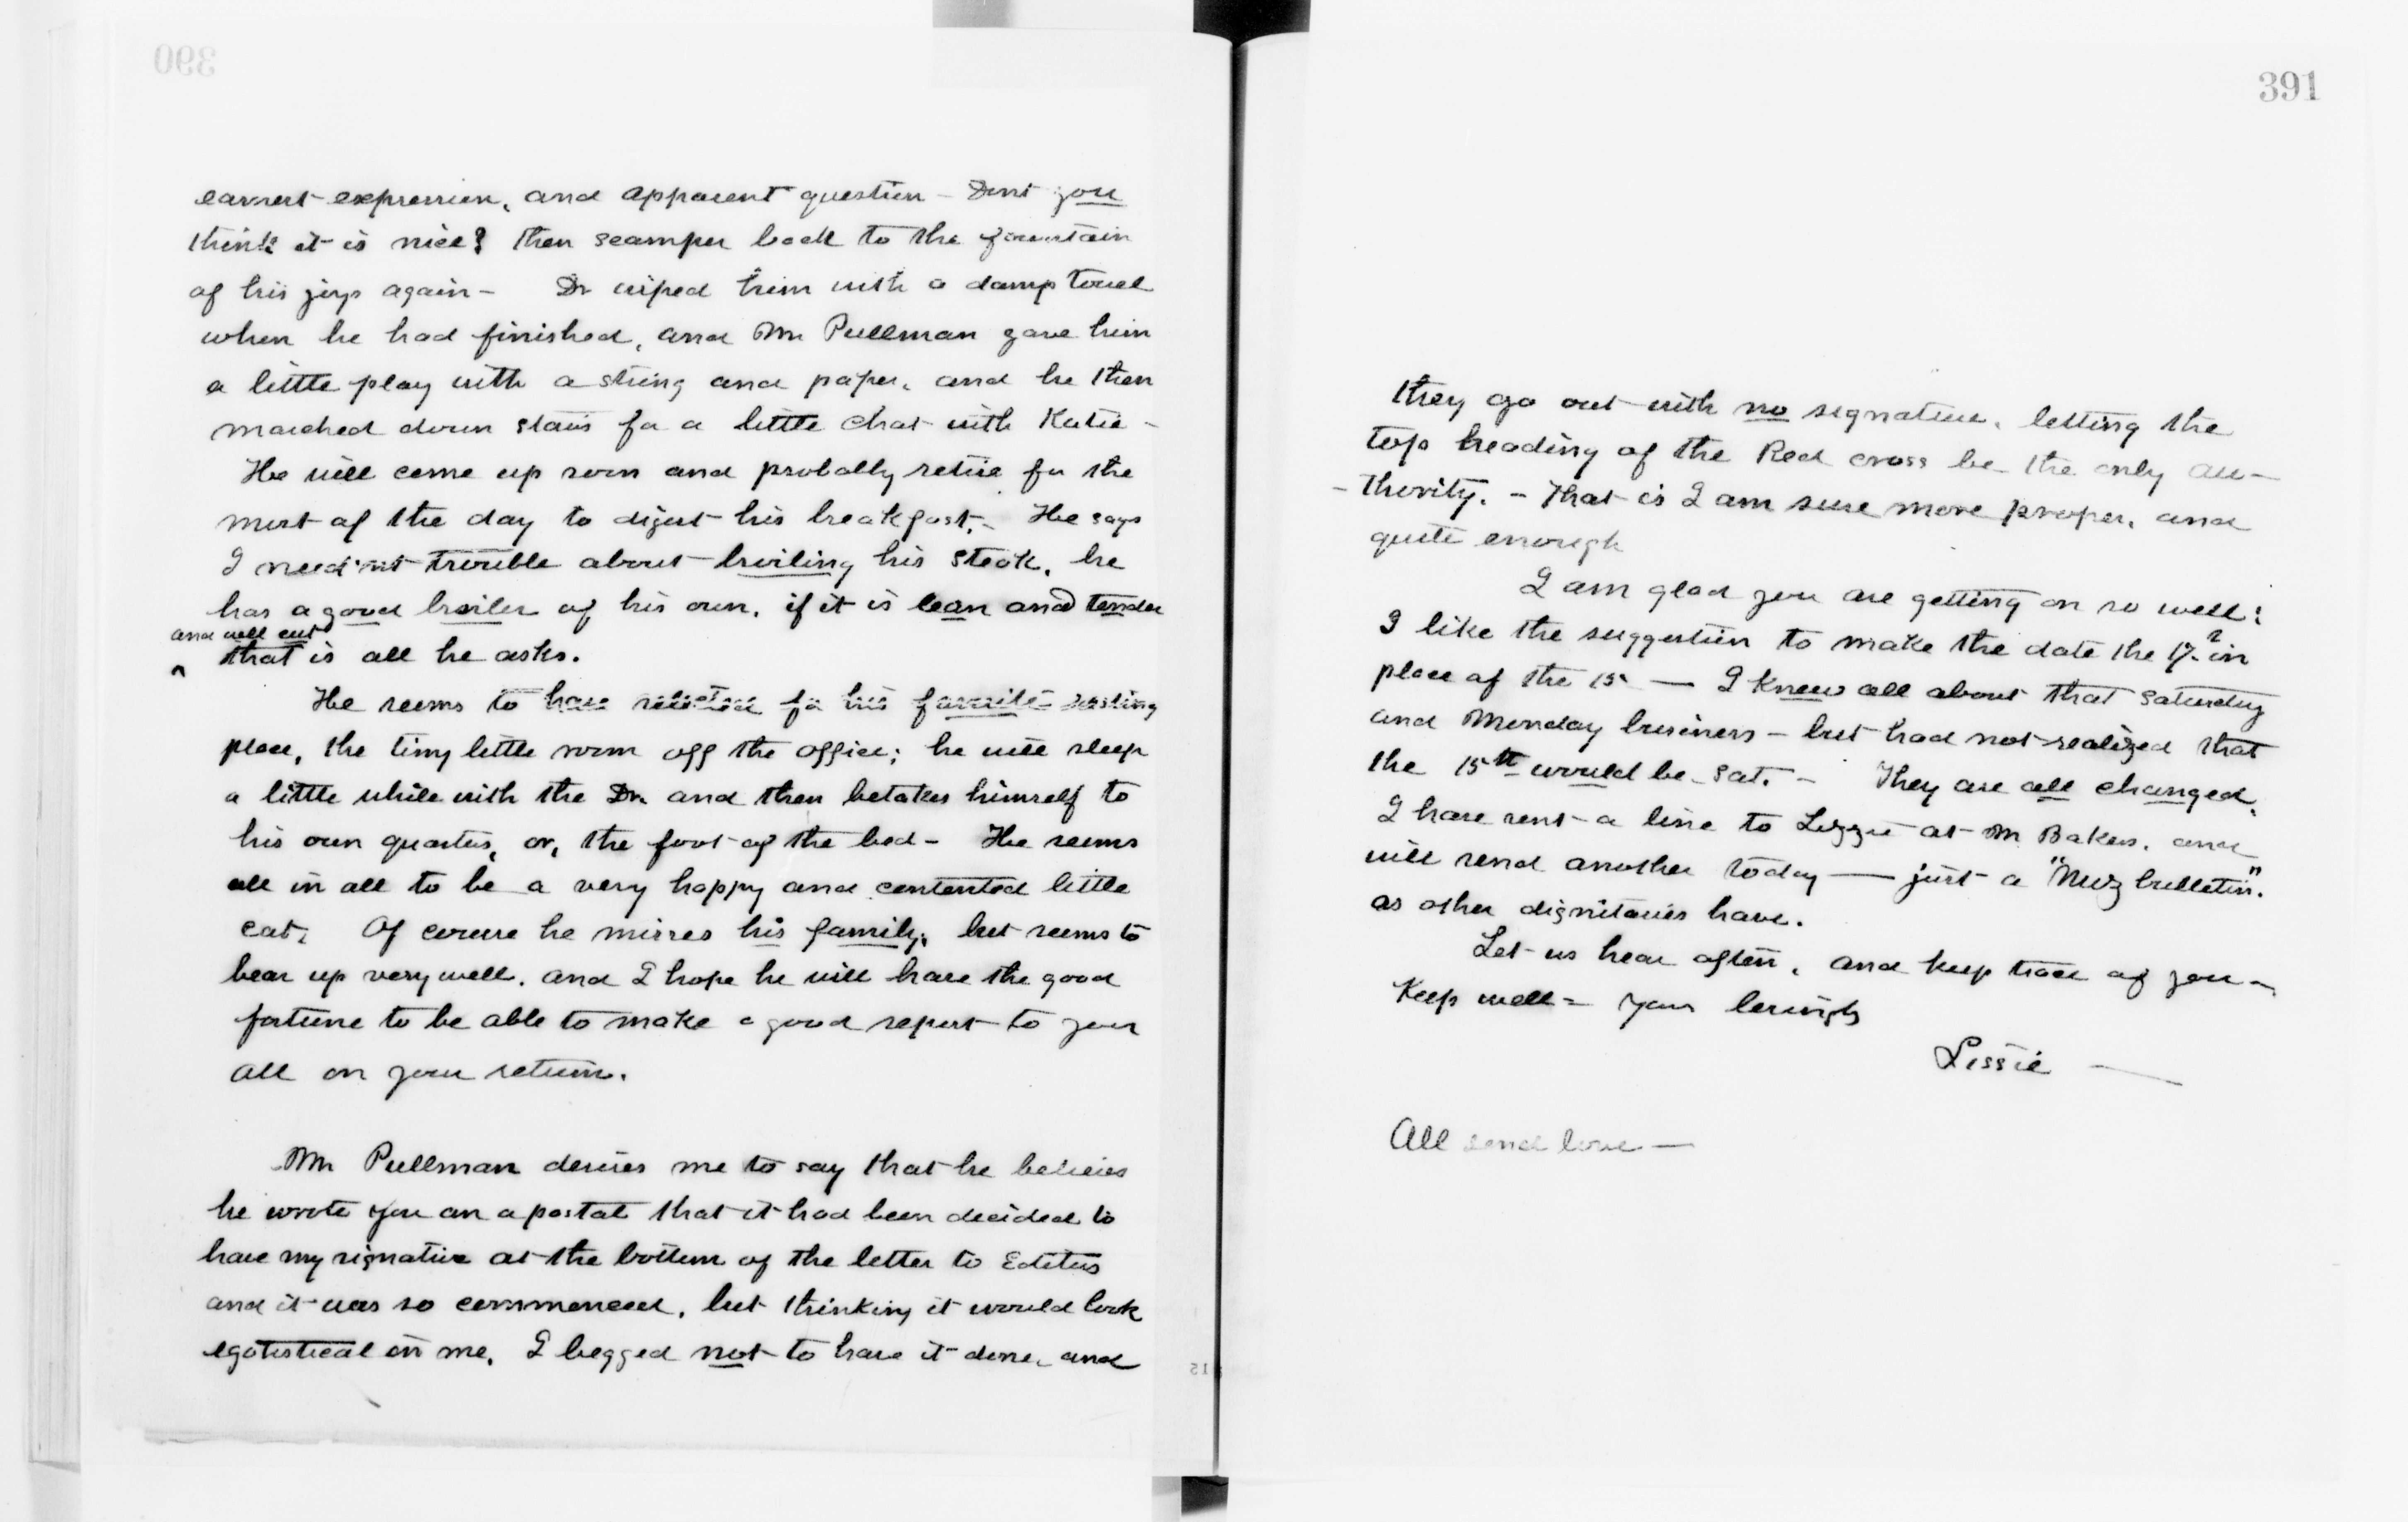 390
earnest expression, and apparent question - Dont you
think it is nice? then scamper back to the fountain
of his joys again - Dr wiped him with a damp towel
when he had finished, and Mr Pullman gave him
a little play with a string and paper, and he then
marched down stairs for a little chat with Katie -
He will come up soon and probally retire for the
most of the day to digest his breakfast. - He says
I need'nt trouble about broiling his steak, he
has a good broiler of his own, if it is lean and tender
and well cut
^ that is all he asks.
He seems to have selected for his favorite resting
place, the tiny little room off the office; he will sleep
a little while with the Dr. and then betakes himself to
his own quarters, or, the foot of the bed - He seems
all in all to be a very happy and contented little
cat. Of course he misses his family, but seems to
bear up very well, and I hope he will have the good
fortune to be able to make a good report to you
all on your return.
Mr Pullman desires me to say that he believes
he wrote you on a postal that it had been decided to
have my signature at the bottom of the letter to Editors
and it was so commenced, but thinking it would look
egotistical in me, I begged not to have it done, and
391
they go out with no signature, letting the
top heading of the Red cross be the only au-
-thority. - That is I am sure more proper, and
quite enough
I am glad you are getting on so well;
I like the suggestion to make the date the 17. in
place of the 15 — I knew all about that saturday
and Monday business - but had not realized that
the 15th would be Sat. - They are all changed.
I have sent a line to Lizzie at M Bakers, and
will send another today — just a "Nuz bulletin".
as other dignitaries have.
Let us hear often, and keep trace of you -
Keep well = Your lovingly
Lissie —
All send love —